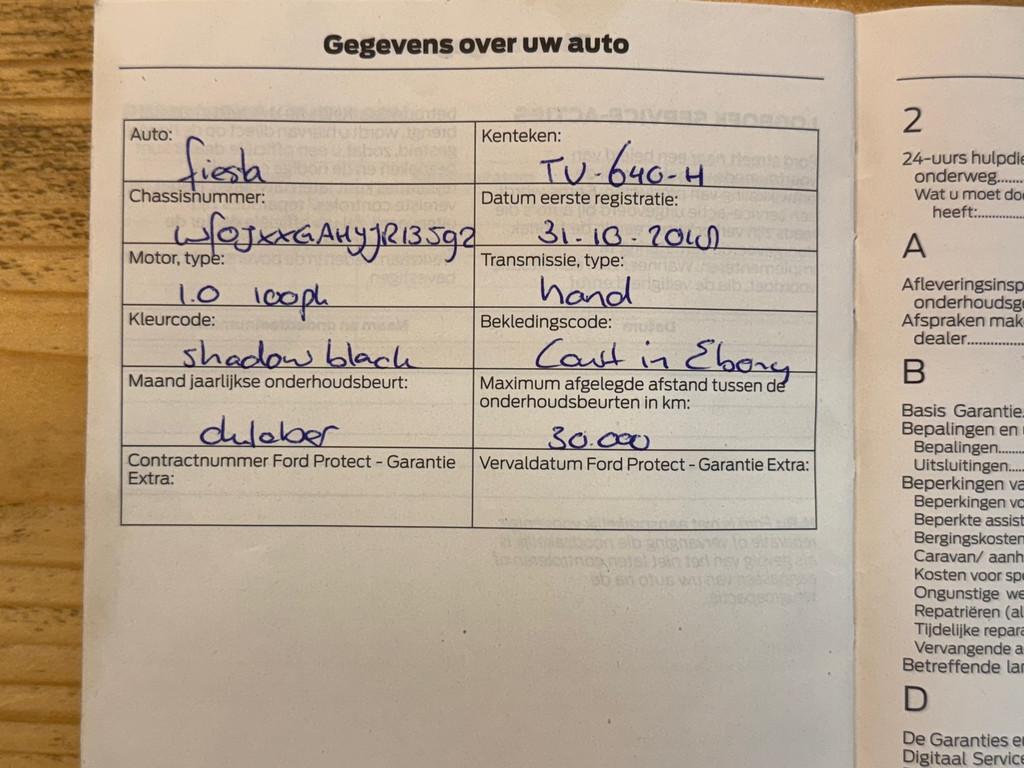 Gegevens over uw auto
Auto:
fiesta
Kenteken:
TV-640-H
Chassisnummer:
Datum eerste registratie:
31-10-2018
Motor, type:
1.0 100pk
Transmissie, type:
hand
Kleurcode:
shadow black
Bekledingscode:
in Ebony
Maand jaarlijkse onderhoudsbeurt:
Maximum afgelegde afstand tussen de
onderhoudsbeurten in km:
30.000
Contractnummer Ford Protect - Garantie
Extra:
Vervaldatum Ford Protect - Garantie Extra:
2
24-uurs hulpdie
onderweg.......
Wat u moet do
heeft:............
A
Afleveringsinsp
onderhoudsg
Afspraken mak
dealer..............
B
Basis Garantie.
Bepalingen en
Bepalingen.......
Uitsluitingen....
Beperkingen va
Beperkingen vo
Beperkte assist
Bergingskosten
Caravan/ aanh
Kosten voor spe
Ongunstige we
Repatriëren (al
Tijdelijke repara
Vervangende a
Betreffende lan
D
De Garanties en
Digitaal Service